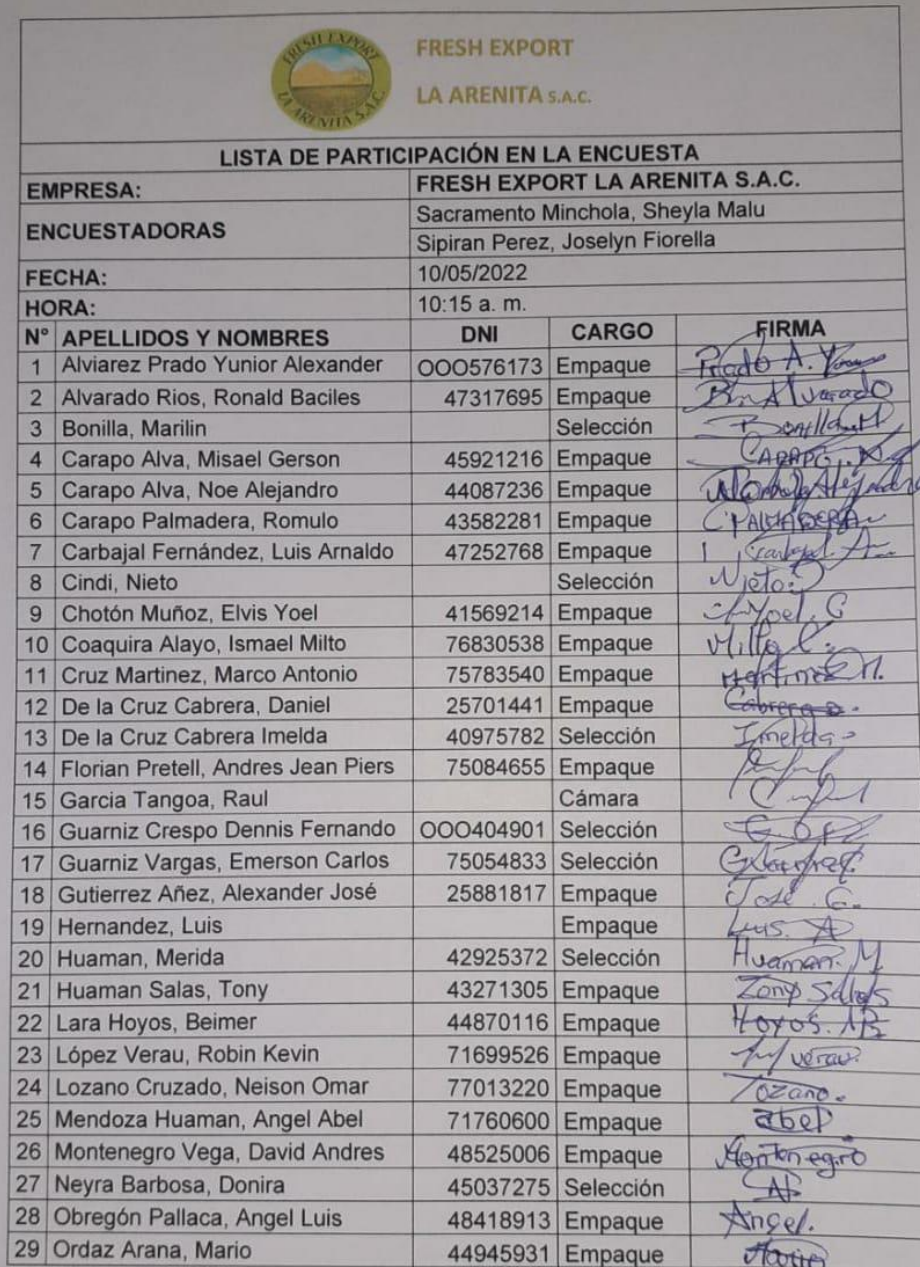 FRESH EXPORT
LA ARENITA S.A.C.
FRESH EXPORT
LA ARENITA S.A.C.
LISTA DE PARTICIPACIÓN EN LA ENCUESTA
EMPRESA: FRESH EXPORT LA ARENITA S.A.C.
ENCUESTADORAS Sacramento Minchola, Sheyla Malu
Sipiran Perez, Joselyn Fiorella
FECHA: 10/05/2022
HORA: 10:15 a. m.
N° APELLIDOS Y NOMBRES DNI CARGO FIRMA
1 Alviarez Prado Yunior Alexander OOO576173 Empaque Prado A.
2 Alvarado Rios, Ronald Baciles 47317695 Empaque Alvarado
3 Bonilla, Marilin Selección Bonilla M
4 Carapo Alva, Misael Gerson 45921216 Empaque CARAPO
5 Carapo Alva, Noe Alejandro 44087236 Empaque
6 Carapo Palmadera, Romulo 43582281 Empaque PALMADERA
7 Carbajal Fernández, Luis Arnaldo 47252768 Empaque
8 Cindi, Nieto Selección Nieto
9 Chotón Muñoz, Elvis Yoel 41569214 Empaque Yoel C
10 Coaquira Alayo, Ismael Milto 76830538 Empaque Milto C.
11 Cruz Martinez, Marco Antonio 75783540 Empaque Martinez M.
12 De la Cruz Cabrera, Daniel 25701441 Empaque Cabrera D.
13 De la Cruz Cabrera Imelda 40975782 Selección Imelda
14 Florian Pretell, Andres Jean Piers 75084655 Empaque
15 Garcia Tangoa, Raul Cámara
16 Guarniz Crespo Dennis Fernando OOO404901 Selección
17 Guarniz Vargas, Emerson Carlos 75054833 Selección
18 Gutierrez Añez, Alexander José 25881817 Empaque José. G.
19 Hernandez, Luis Empaque Luis. A
20 Huaman, Merida 42925372 Selección Huaman. M
21 Huaman Salas, Tony 43271305 Empaque Tony Salas
22 Lara Hoyos, Beimer 44870116 Empaque Hoyos.
23 López Verau, Robin Kevin 71699526 Empaque Verau
24 Lozano Cruzado, Neison Omar 77013220 Empaque Lozano.
25 Mendoza Huaman, Angel Abel 71760600 Empaque abel
26 Montenegro Vega, David Andres 48525006 Empaque Montenegro
27 Neyra Barbosa, Donira 45037275 Selección
28 Obregón Pallaca, Angel Luis 48418913 Empaque Angel.
29 Ordaz Arana, Mario 44945931 Empaque Mario